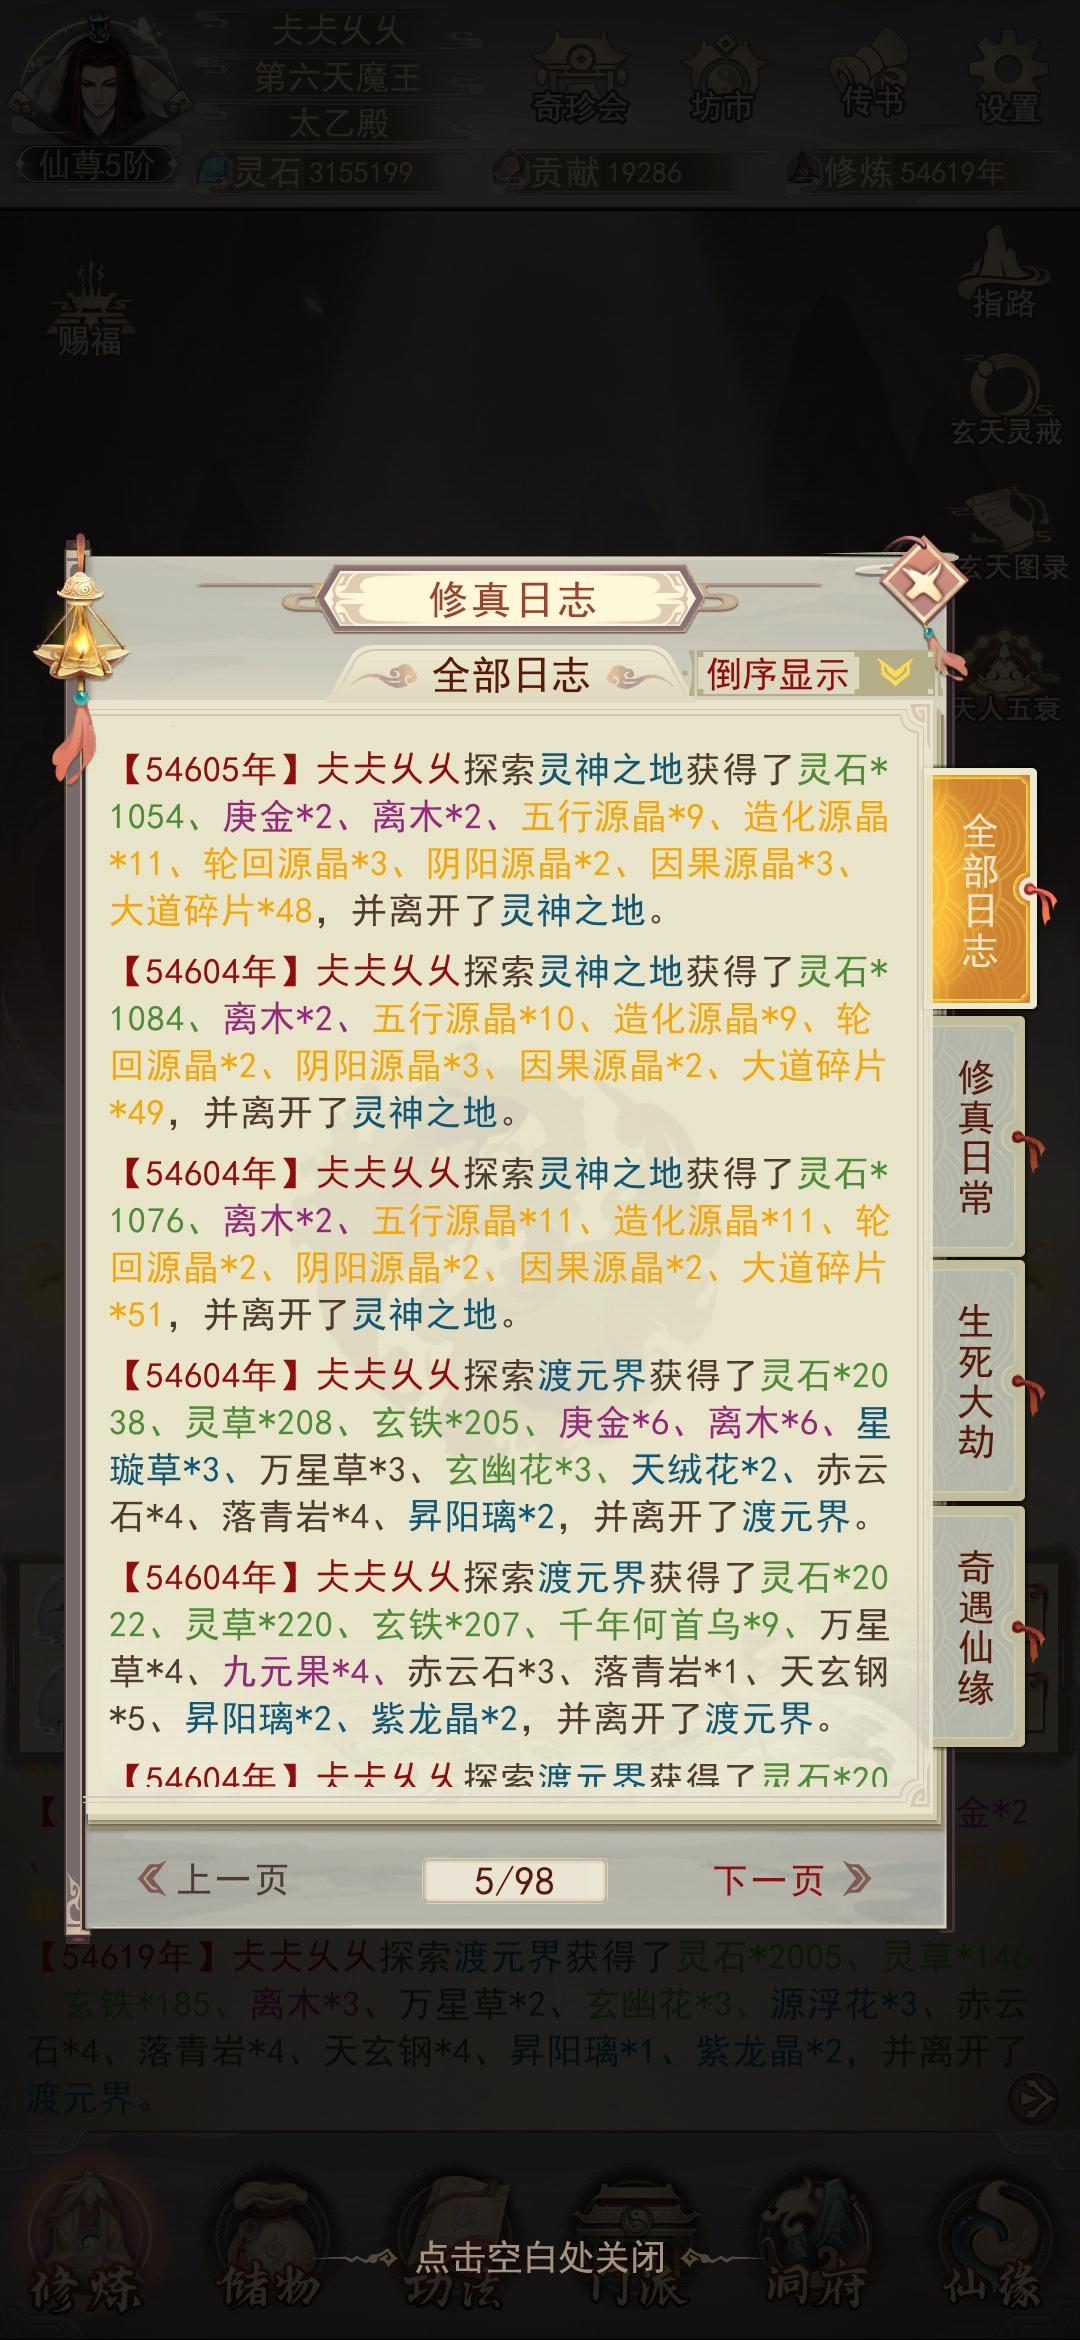 夨夨乆乆
第六天魔王
太乙殿
奇珍会
坊市
传书
设置
仙尊5阶
灵石 3155199
贡献 19286
修炼 54619年
赐福
指路
玄天灵戒
玄天图录
天人五衰
修真日志
全部日志
倒序显示
【54605年】探索灵神之地获得了灵石*
1054、庚金*2、离木*2、五行源晶*9、造化源晶
*11、轮回源晶*3、阴阳源晶*2、因果源晶*3、
大道碎片*48，并离开了灵神之地。
【54604年】探索灵神之地获得了灵石*
1084、离木*2、五行源晶*10、造化源晶*9、轮
回源晶*2、阴阳源晶*3、因果源晶*2、大道碎片
*49，并离开了灵神之地。
【54604年】探索灵神之地获得了灵石*
1076、离木*2、五行源晶*11、造化源晶*11、轮
回源晶*2、阴阳源晶*2、因果源晶*2、大道碎片
*51，并离开了灵神之地。
【54604年】探索渡元界获得了灵石*20
38、灵草*208、玄铁*205、庚金*6、离木*6、星
璇草*3、万星草*3、玄幽花*3、天绒花*2、赤云
石*4、落青岩*4、昇阳璃*2，并离开了渡元界。
【54604年】探索渡元界获得了灵石*20
22、灵草*220、玄铁*207、千年何首乌*9、万星
草*4、九元果*4、赤云石*3、落青岩*1、天玄钢
*5、昇阳璃*2、紫龙晶*2，并离开了渡元界。
【54604年】探索渡元界获得了灵石*20
全部日志
修真日常
生死大劫
奇遇仙缘
金*2
上一页
5/98
下一页
【54619年】探索渡元界获得了灵石*2005、灵草*146
、玄铁*185、离木*3、万星草*2、玄幽花*3、源浮花*3、赤云
石*4、落青岩*4、天玄钢*4、昇阳璃*1、紫龙晶*2，并离开了
渡元界。
点击空白处关闭
修炼
储物
功法
门派
洞府
仙缘